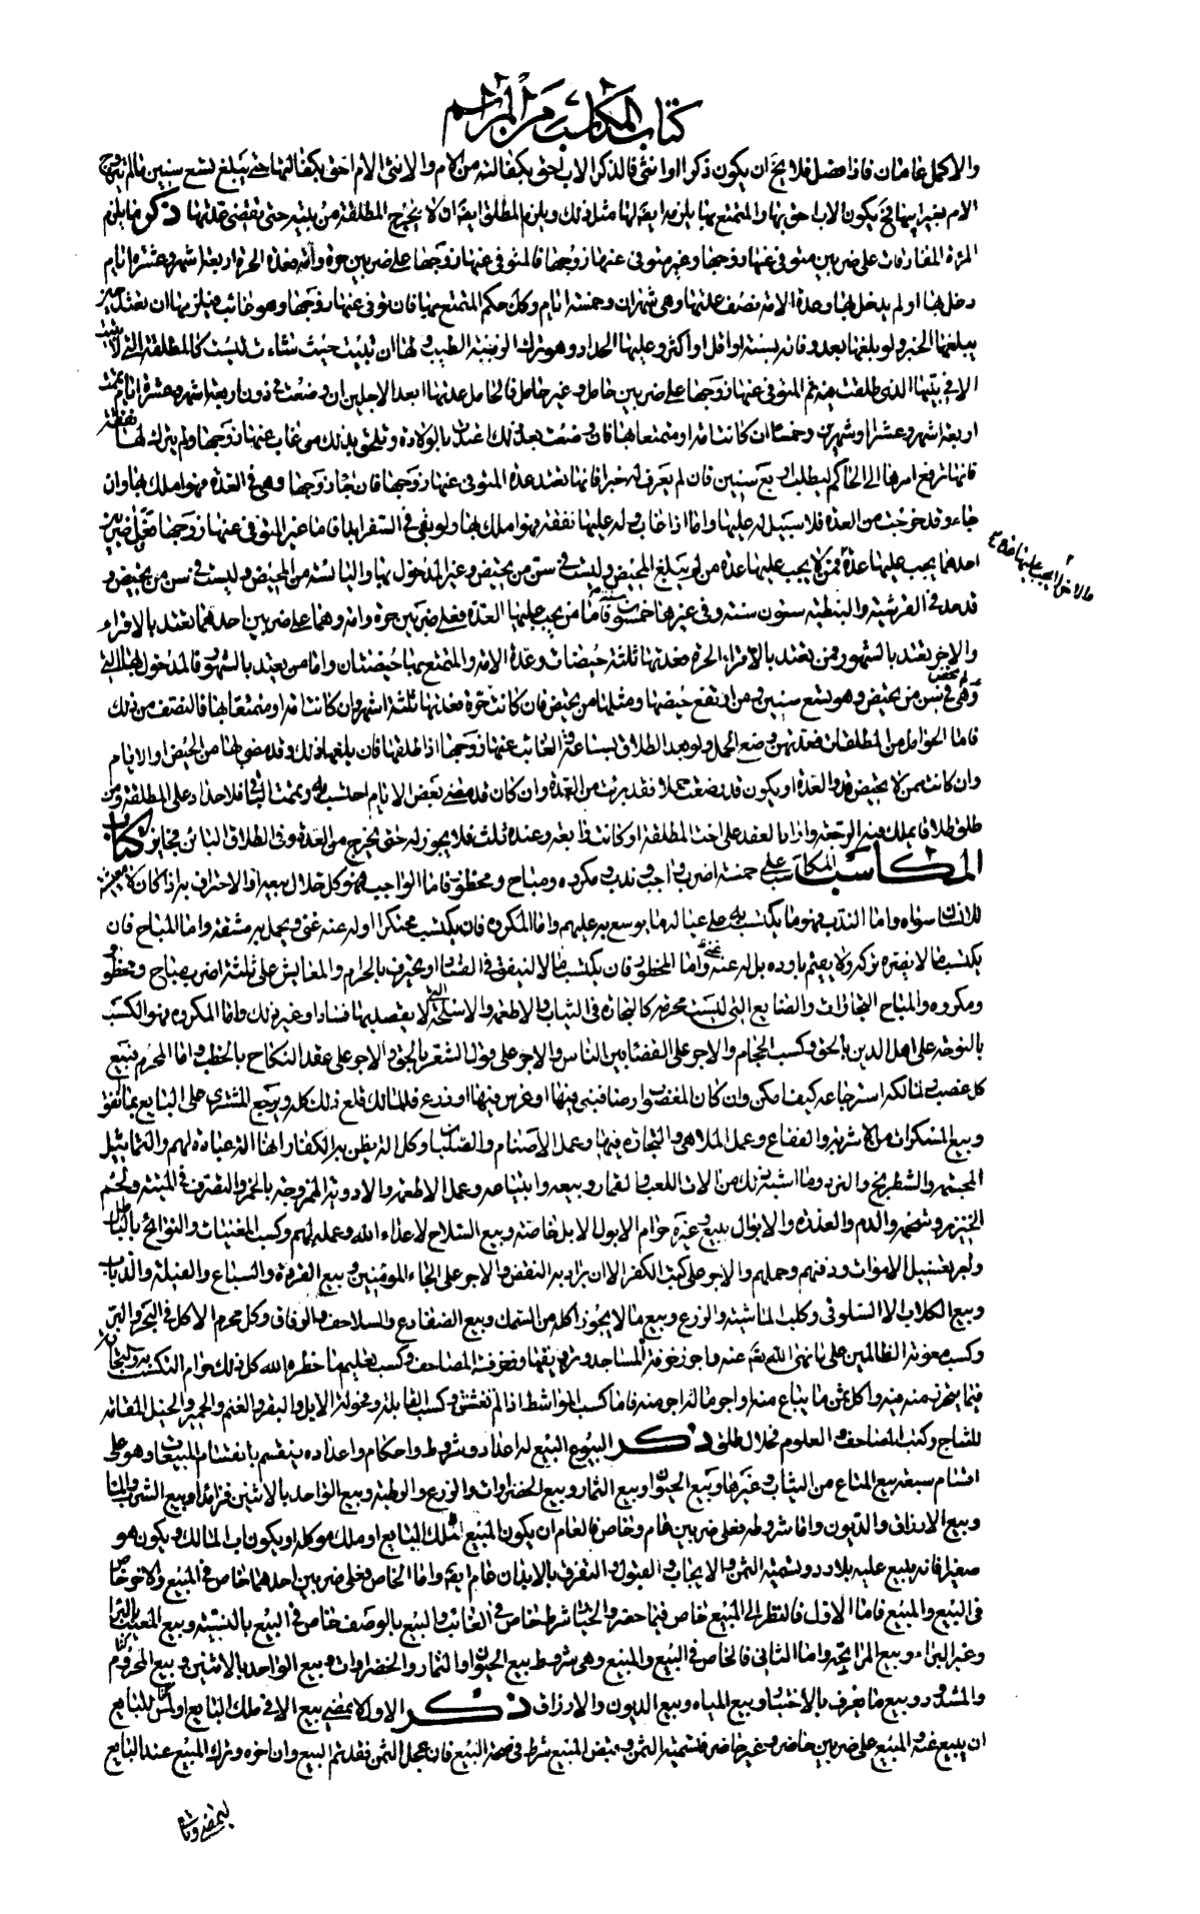 كتاب المكاسب من المراسم
والاكمل عامان فاذا فصل فلا يخ ان يكون ذكرا او انثى فالذكر الاب احق بكفالته من الام والانثى الام احق بكفالتها حتى يبلغ تسع سنين ما لم تتزوج
الام بغير ابيها فح يكون الاب احق بها والمتمتع بها يلزم ايضا لها مثل ذلك ويلزم المطلق ايضا ان لا يخرج المطلقة من بيته حتى تقضى عدتها ذكر ما يلزم
المرأة المفارقات على ضربين متوفى عنها زوجها وغير متوفى عنها زوجها فالمتوفى عنها زوجها على ضربين حرة وامة فعدة الحرة اربعة اشهر وعشرة ايام
دخل بها او لم يدخل بها وعدة الامة نصف عدتها وهى شهران وخمسة ايام وكك حكم المتمتع بها فان توفى عنها زوجها وهو غائب فيلزمها ان تعتد حين
يبلغها الخبر ولو بلغها بعد وفاته بسنة او اقل او اكثر وعليها الحداد وهو ترك الزينة والطيب ولها ان تبيت حيث شاءت ليست كالمطلقة التى لا تبيت
الا فى بيتها الذى طلقت فيه ثم المتوفى عنها زوجها على ضربين حامل وغير حامل فالحامل عدتها ابعد الاجلين ان وضعت فى دون اربعة اشهر وعشرة ايام تممت
اربعة اشهر وعشرا او شهرين وخمسا ان كانت امة او متمتعا بها فان وضعت بعد ذلك اعتدت بالولادة وتلحق بذلك من غاب عنها زوجها ولم يترك لها نفقة
فانها ترفع امرها الى الحاكم ليطلب اربع سنين فان لم يعرف له خبر فانها تعتد عدة المتوفى عنها زوجها فان جاء زوجها وهى فى العدة فهو املك بها وان
جاء وقد خرجت من العدة فلا سبيل له عليها واما اذا غاب وله عليها نفقة فهو املك بها ولو بقى فى السفر ابدا فاما غير المتوفى عنها زوجها فعلى ضربين
احدهما يجب عليها عدة فمن لا يجب عليها عدة من لم يبلغ المحيض وليست فى سن من يحيض وغير المدخول بها واليائسة من المحيض وليست فى سن من يحيض و
قد حد فى القرشية والنبطية ستون سنة وفى غيرها خمسون فاما من يجب عليها العدة فعلى ضربين حرة وامة وهما على ضربين احدهما تعتد بالاقراء
والاخر يعتد بالشهور فمن يعتد بالاقراء الحرة فعدتها ثلثة حيضات وعدة الامة والمتمتع بها حيضتان واما من يعتد بالشهور فالمدخول بها التى
وهى فى سن من يحيض وهو تسع سنين ومن ارتفع حيضها ومثلها من يحيض فان كانت حرة فعدتها ثلثة اشهر وان كانت امة او متمتعا بها فالنصف من ذلك
فاما الحوامل من المطلقات فعدتهن وضع الحمل ولو بعد الطلاق بساعة والغائب عنها زوجها اذا طلقها فان بلغها ذلك وقد مضى لها من الحيض او الايام
وان كانت ممن لا يحيض قدر العدة او يكون قد وضعت حملا فقد برئت من العدة وان كان قد مضى بعض الايام احتسب به وتممت الباقى فلا حداد على المطلقة ومن
طلق طلاقا يملك فيه الرجعة واراد العقد على اخت المطلقة او كانت رابعة وعنده ثلث فلا يجوز له حتى يخرج من العدة وفى الطلاق البائن فجائز كتاب
المكاسب المكاسب على خمسة اضرب واجب وندب ومكروه ومباح ومحظور فاما الواجب فهو كل حلال بيعه او الاحتراف به اذا كان لا معيشة
للانسان سواه واما الندب فهو ما يكتسب به على عياله ما يوسع به عليهم واما المكروه فان يكتسب محتكرا او له عنه غنى ويحمل به مشقة واما المباح فان
يكتسب ما لا يضره تركه ولا يقيم باوده بل له عنه غنى واما المحظور فان يكتسب مالا لينفق فى الفساد او يحترف بالحرام والمعايش على ثلثة اضرب مباح ومحظور
ومكروه والمباح التجارات والصنايع التى ليست محرمة كالتجارة فى الثياب والاطعمة والاسلحة التى لا يقصد بها فسادا وغير ذلك واما المكروه فهو الكسب
بالنوحة على اهل الدين بالحق وكسب الحجام والاجر على القضا بين الناس والاجر على قول الشعر بالحق والاجر على عقد النكاح بالخطب واما المحرم فبيع
كل غصب ولمالكه استرجاعه كيف امكن وان كان المغصوب ارضا فبنى فيها او غرس فيها او زرع فللمالك قلع ذلك كله ويرجع المشترى على البايع بما انفق
وبيع المسكرات من الاشربة والفقاع وعمل الملاهى والتجارة فيها وعمل الاصنام والصلبان وكل الة يظن بها الكفار انها الة عبادة لهم والتماثيل
المجسمة والشطرنج والنرد وما اشبه ذلك من الات اللعب والقمار وبيعه وابتياعه وعمل الاطعمة والادوية الممزوجة بالخمر والتصرف فى الميتة ولحم
الخنزير وشحمه والدم والعذرة والابوال ببيع وغيره حرام الا بول الابل خاصة وبيع السلاح لاعداء الله وعمله لهم وكسب المغنيات والنوائح بالباطل
واجر تغسيل الاموات ودفنهم وحملهم والاجر على كتب الكفر الا ان يراد به النقض والاجر على هجاء المؤمنين وبيع القردة والسباع والفيلة والذباب
وبيع الكلاب الا السلوقى وكلب الماشية والزرع وبيع ما لا يجوز اكله من السمك وبيع الضفادع والسلاحف والرقاق وكل محرم الاكل فى البحر والبر
وكسب معونة الظالمين على ما نهى الله تعالى عنه واجر زخرفة المساجد وتزويقها وزخرفة المصاحف وكسب تعليم ما حظره الله كل ذلك حرام التكسب به والتجارة
للنتاج وكتب المصاحف والعلوم فحلال طلق ذكر البيوع البيع له اعداد وشروط واحكام واعداده ينقسم بانقسام المبيعات وهو على
اقسام سبعة بيع المتاع من الثياب وغيرها وبيع الحيوان وبيع الثمار وبيع الخضراوات والزرع والرطبة وبيع الواحد بالاثنين فزائدا وبيع الشرب والماء
وبيع الارزاق والديون واما شروطه فعلى ضربين عام وخاص فالعام ان يكون المبيع ملك البايع او ملك موكله او يكون اب المالك ويكون هو
صغيرا فانه يبيع عليه بلا رد وتسمية الثمن والايجاب والقبول والتفرق بالابدان عام ايضا واما الخاص فعلى ضربين احدهما خاص فى المبيع والاخر خاص
فى البيع والمبيع فاما الاول فالنظر الى المبيع خاص فيما حضر والخيار شرط خاص فى الغائب والبيع بالوصف خاص فى البيع بالنسيئة وبيع المعيب بالبراءة
وغير البراء وبيع المرابحة واما الثانى فالخاص فى البيع والمبيع وهى شروط بيع الحيوان والثمار والخضراوات وبيع الواحد بالاثنين وبيع المحزوم
والمشدود وبيع ما يعرف بالاختبار وبيع المياه وبيع الديون والارزاق ذكر الاول لا يمضى بيع الا فى ملك البايع او لمن للبايع
ان يبيع عنه والمبيع على ضربين حاضر وغير حاضر فتسمية الثمن وقبض المبيع شرط فى صحة البيع فان عجل الثمن فقد تم البيع وان اخره وترك المبيع عند البايع